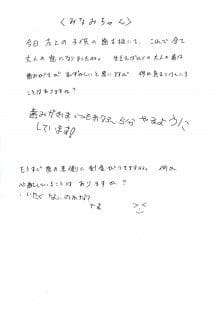 〈みなみちゃん〉
今日 左上の子供の歯を抜いて、これで全て
大人の歯になりましたね。生えはじめの大人の歯は
歯みがきが むずかしいと思いますが 何か気をつけている
ことはありますか?
歯みがきは いつもお父さん 5分 やるように
しています!
もうすぐ歯の裏側に制度がつきますね。何か
心配していることは ありますか?
いたくないのかな?